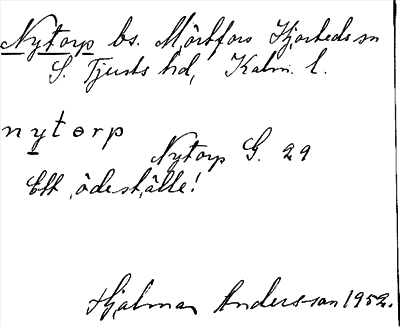 Nytorp bs. Mörtfors Hjorteds sn
S. Tjusts hd, Kalm. l.
nytorp
Nytorp G. 29
Ett ödeställe!
Hjalmar Andersson 1952.